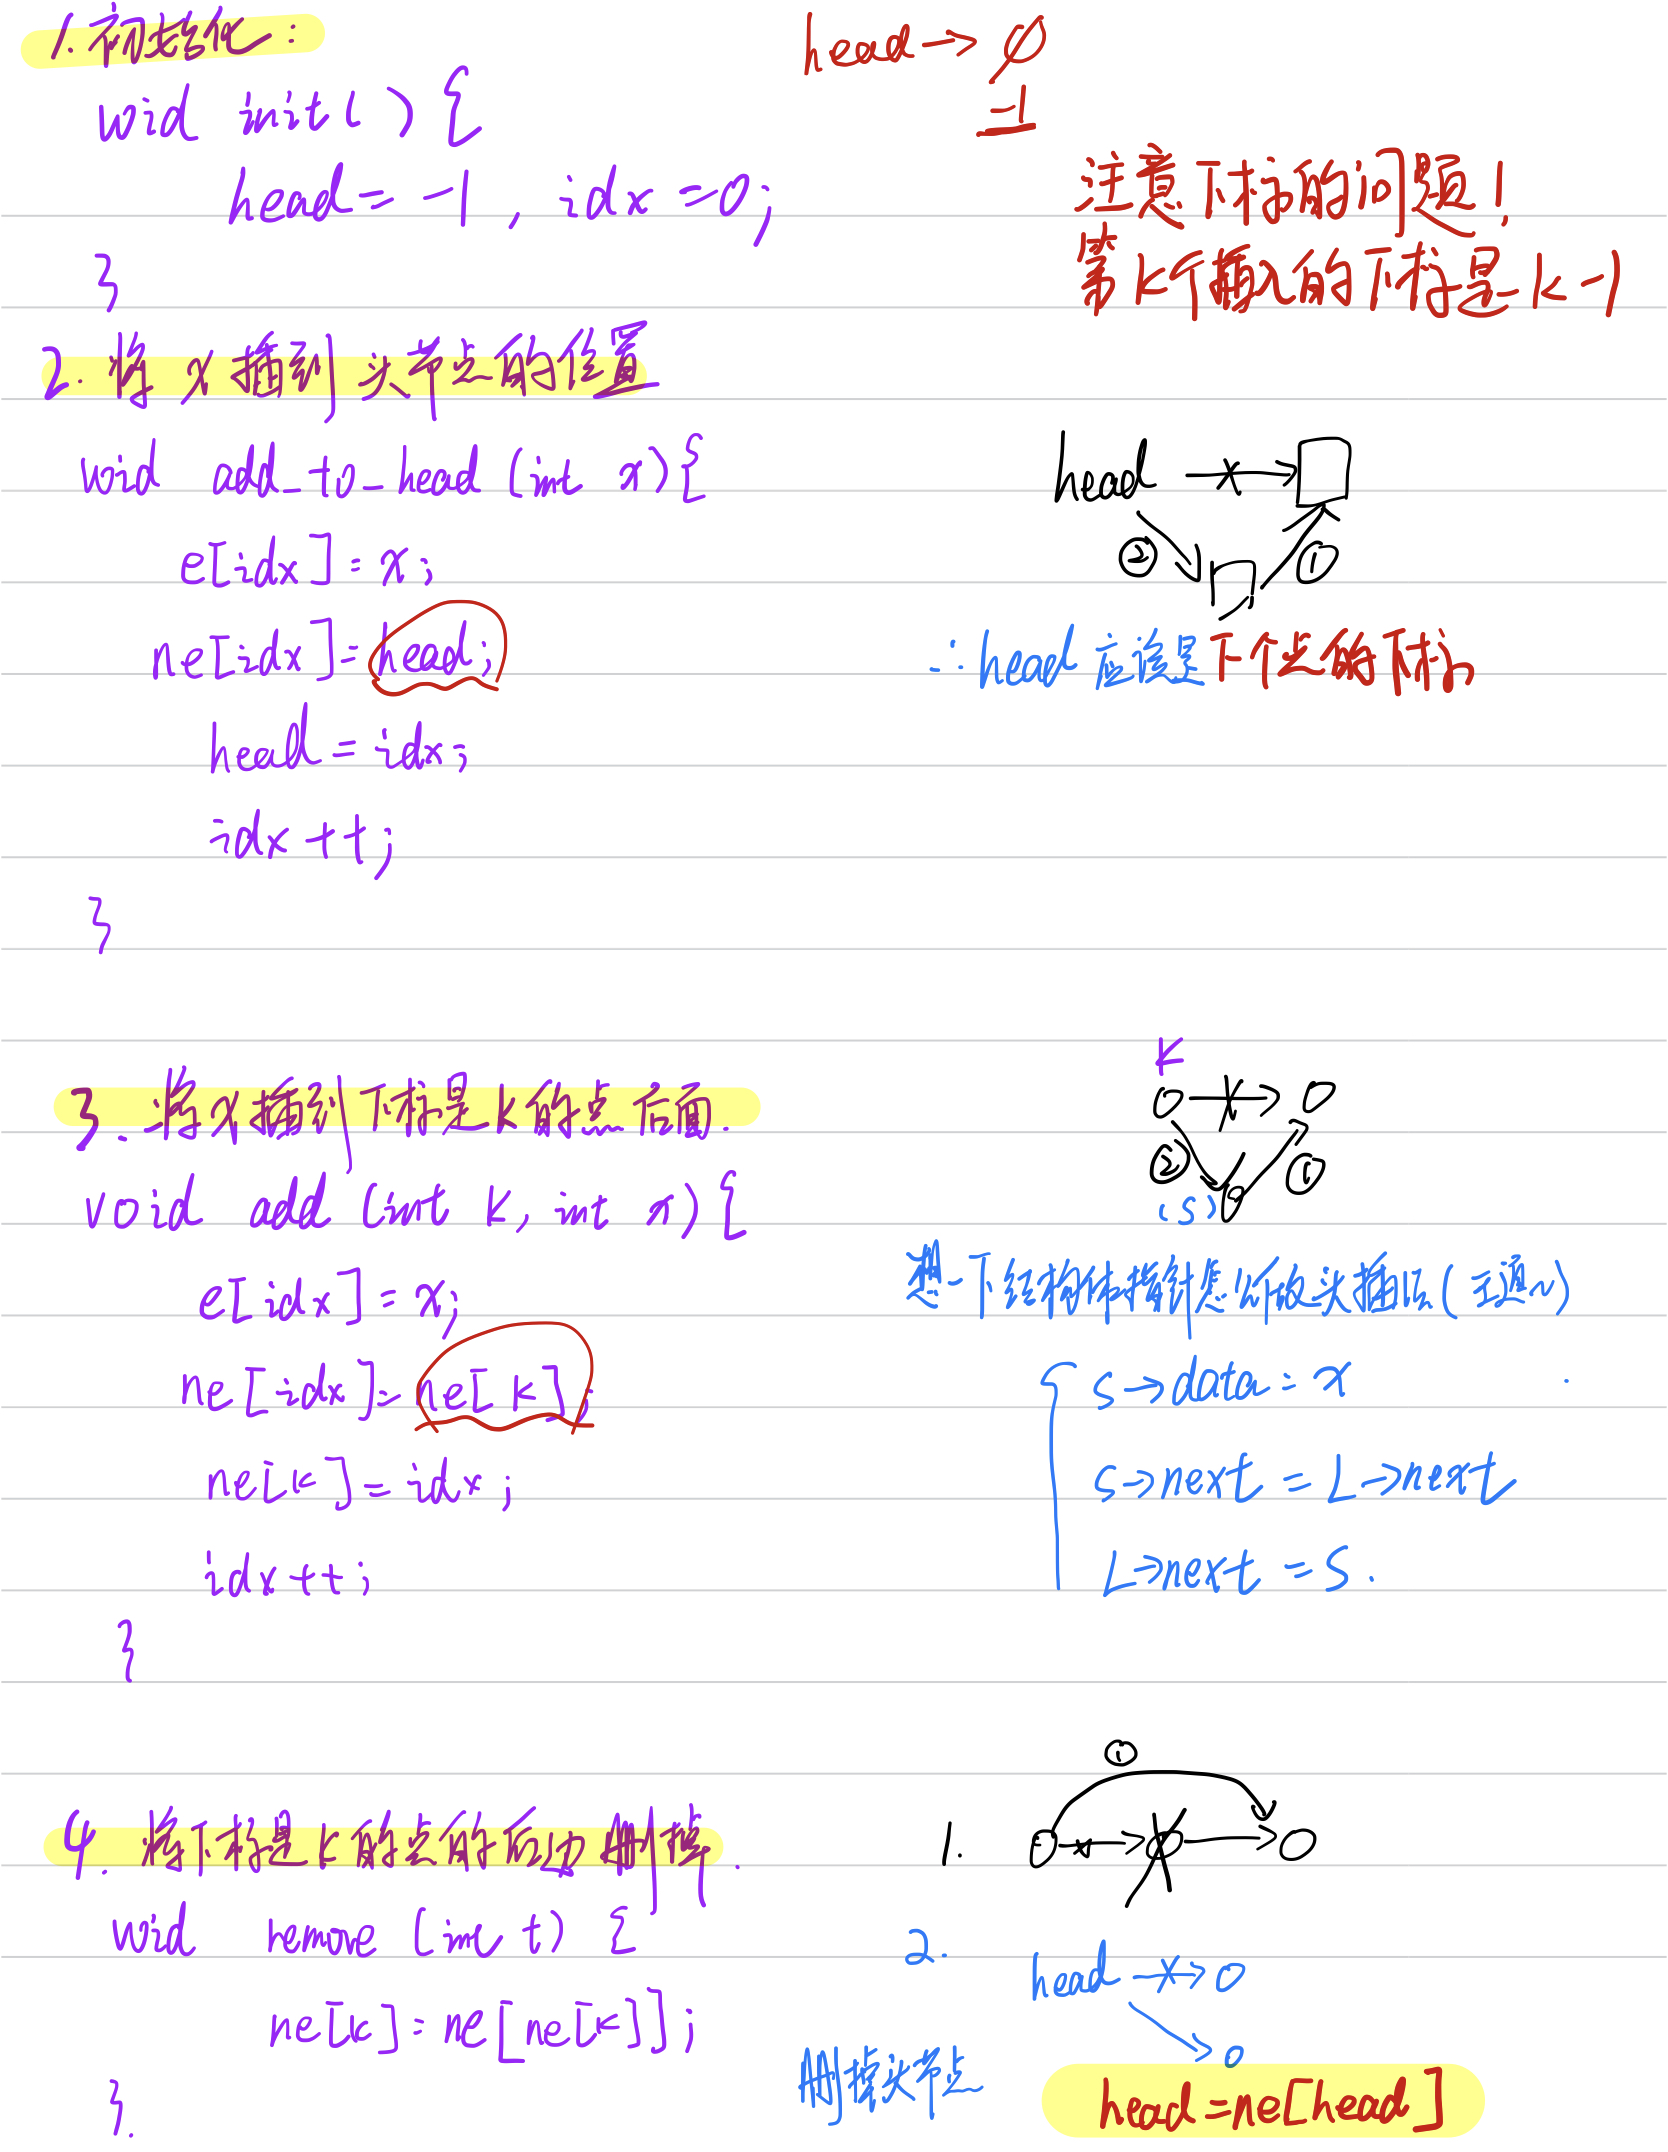 1. 初始化：
head → ∅
-1
void init( ) {
head = -1 , idx = 0;
}
注意下标的问题！
第k个插入的下标是 k-1
2. 将 x 插到 头节点的位置
void add_to_head (int x){
e[idx] = x;
ne[idx] = head;
head = idx;
idx ++;
}
head
②
①
∴ head 应该是下个点的下标
3. 将x插到下标是k的点后面.
void add (int k, int x) {
e[idx] = x;
ne[idx] = ne[k];
ne[k] = idx;
idx++;
}
k
② ①
(s)
想一下结构体指针怎么做头插法
s→data = x
s→next = L→next
L→next = s.
4. 将下标是k的点的后边删掉.
void remove (int t) {
ne[k] = ne[ne[k]];
}.
①
1.
2.
head
删掉头节点
head = ne[head]